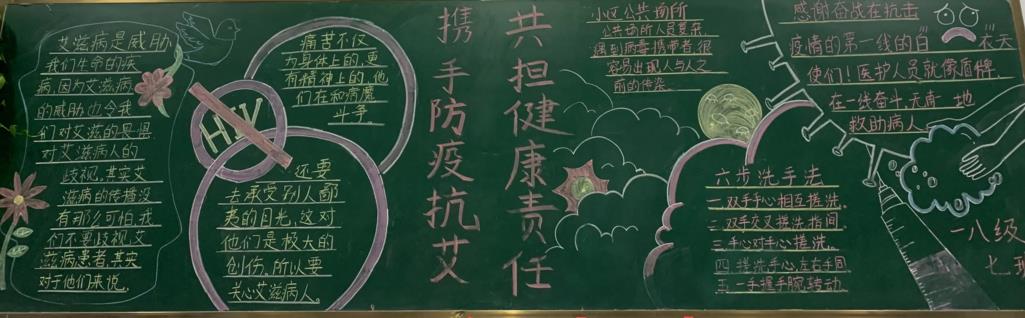 艾滋病是威胁
我们生命的疾
病,因为艾滋病
的威胁也令我
们对艾滋的恐惧
对艾滋病人的
歧视,其实艾
滋病的传播没
有那么可怕,我
们不要歧视艾
滋病患者,其实
对于他们来说,
HIV
痛苦不仅
为身体上的,更
有精神上的,他
们在和病魔
斗争。
还要
去承受别人鄙
夷的目光,这对
他们是极大的
创伤,所以要
关心艾滋病人。
携手防疫抗艾
共担健康责任
小区公共场所
公共场所人员复杂,
遇到病毒携带者很
容易出现人与人之
前的传染。
六步洗手法
一.双手手心相互搓洗。
二.双手交叉搓洗指间。
三.手心对手心搓洗。
四.搓洗手心,左右手同。
五.一手握手腕转动。
感谢奋战在抗击
疫情的第一线的白衣天
使们!医护人员就像盾牌,
在一线奋斗,无南地
救助病人。
一八级
七班